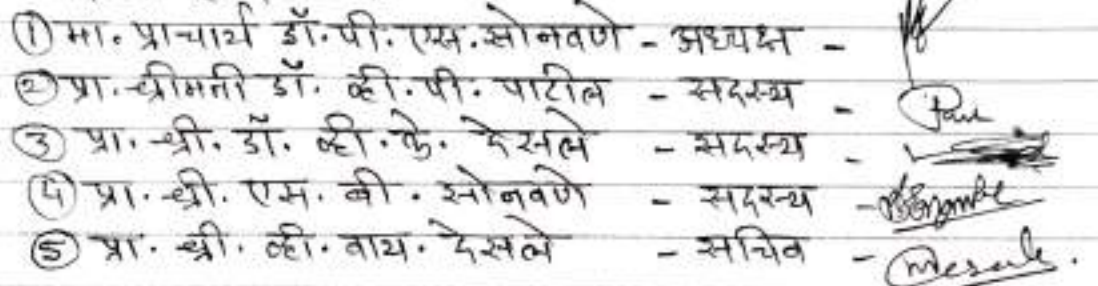 ① मा. प्राचार्य डॉ. पी. एस. सोनवणे - अध्यक्ष -
② प्रा. श्रीमती डॉ. व्ही. पी. पाटील - सदस्य -
③ प्रा. श्री. डॉ. व्ही. के. देसले - सदस्य -
④ प्रा. श्री. एस. बी. सोनवणे - सदस्य -
⑤ प्रा. श्री. व्ही. वाय. देसले - सचिव -